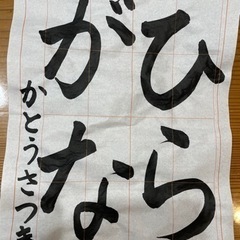 ひら
がな
かとうさつき